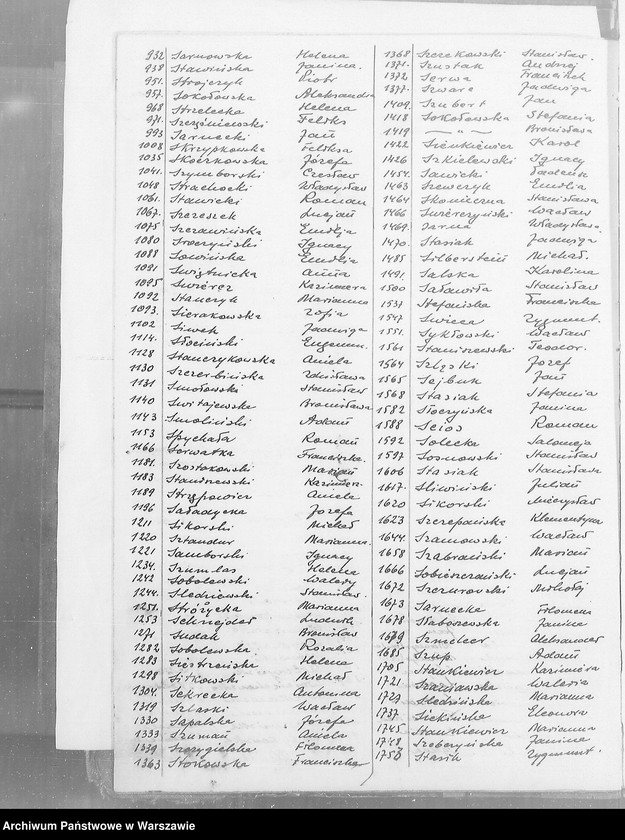 932 Sarnowska Helena
938 Stawińska Janina.
951. Strójczyk Piotr
957. Sokołowska Aleksandra
968 Strzelecka Helena
971. Szcześniewski Feliks
993 Sarnecki Jan
1008 Skrzypkowska Feliksa
1035 Skoczkowska Józefa
1041. Szymborski Czesław
1048 Strachocki Władysław
1061. Stawicki Roman
1067. Szczesek Lucjan
1075 Szczawińska Emilja
1080 Sroczyński Ignacy
1088 Sowińska Emilja
1091 Świątnicka Anna
1095 Świercz Kazimiera
1092 Stanczyk Marianna
1093. Sierakowska Zofia
1102 Siwek Jadwiga
1114. Słociński Eugeniusz.
1128 Stanczykowska Aniela
1130 Szczerbińska Zdzisława
1131 Smoleński Stanisław
1140 Świtajewska Bronisława
1143 Smoliński Adam
1153 Spychała Roman
1166 Serwatka Franciszka.
1181. Szostakowski Marian
1183 Standrewski Kazimierz.
1189 Strzępowicz Aniela
1196 Saładycka Józefa
1211 Sikorski Michał
1220 Sztandur Marianna.
1221 Samborski Ignacy
1234. Szumlas Helena
1242 Sobolewski Walery
1244. Śledziewski Stanisław.
1251. Stróżycka Marianna
1253 Schneider Ludwik
1271 Sudak Bronisław
1282 Sobolewska Rozalia
1283 Siestrzeńska Helena
1298 Sitkowski Michał
1304. Sekrecka Antonina
1319 Szlaski Wacław
1330 Sapalska Józefa
1333 Szuman Aniela
1339 Szczygielska Filomena
1363 Stokowska Franciszka
1368 Szczekowski Stanisław.
1371. Szustak Andrzej
1372 Serwa Franciszek
1377. Szwarc Jadwiga
1409. Szubert Jan
1418 Sokołowska Stefania
1419 — " — Bronisława
1422 Sienkiewicz Karol
1426 Szkielewski Ignacy
1454. Sawicki Tadeusz
1463 Szewczyk Emilia
1464 Słonieczna Stanisława
1466 Świerczyński Wacław
1469. Sarna Władysława.
1470. Stasiak Jadwiga
1485 Silberstein Michał.
1491 Salska Karolina
1500 Saławiła Stanisław
1537 Stefańska Franciszka
1547 Świcca Zygmunt.
1551. Sykłowski Wacław
1561 Staniszewski Teodor.
1564 Szląski Józef
1565 Sejbuk Jan
1568 Stasiak Stefania
1582 Stoczyńska Janina
1588 Seios Roman
1592 Solecka Salomeja
1597 Sosnowski Stanisław
1606 Stasiak Stanisława
1617. Śliwiński Julian
1620 Sikorski Mieczysław
1623 Szczepańska Klementyna
1644. Szamowski Wacław
1658 Szabrański Marian
1666 Sobieszczański Lucjan
1672 Szczurowski Mikołaj
1673 Sarnecka Filomena
1678 Staboszewska Janina
1679 Szmelcer Aleksander
1685 Szup. Adam
1705 Stankiewicz Kazimiera
1721 Szaniawska Waleria
1729 Śledzińska Marianna
1737 Siekińska Eleonora
1745 Stankiewicz Marianna
1748 Szeberyńska Janina
1750 Stasik Zygmunt.
Archiwum Państwowe w Warszawie